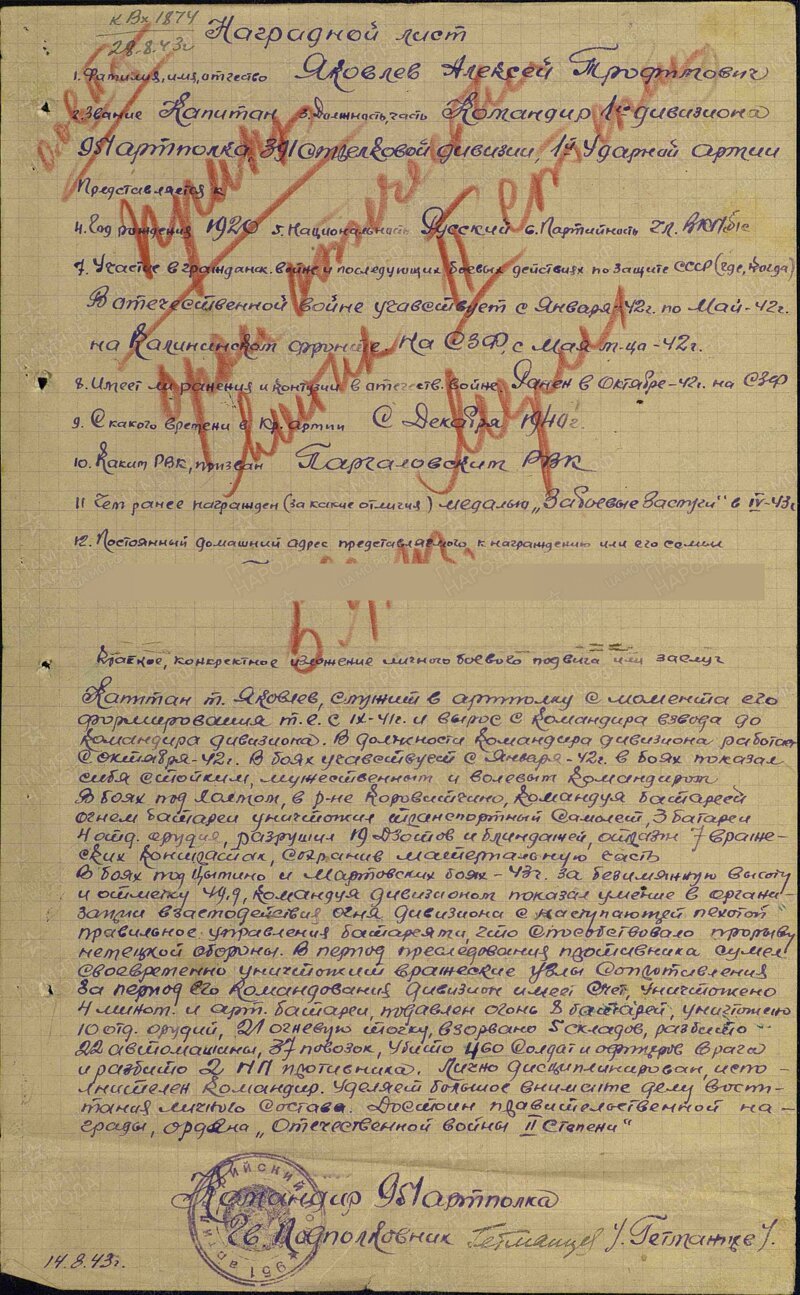 к Вх 1874
28.8.43г
Наградной лист
1. Фамилия, имя, отчество Яковлев Алексей Трофимович
2. Звание Капитан 3. Должность, часть Командир 1го дивизиона
951 артполка, 391 Стрелковой дивизии, 1й Ударной армии
Представляется к
4. Год рождения 1920 5. Национальность Русский 6. Партийность чл. ВКП/б/с
7. Участие в гражданск. войне и последующих боевых действиях по защите СССР (где, когда)
В отечественной войне учавствует с Января-42г. по Май-42г.
на Калининском фронте. На СЗФ, с Мая м-ца-42г.
8. Имеет ли ранения и контузии в отечеств. войне. Ранен в Октябре-42г. на СЗФ
9. С какого времени в Кр. армии С Декабря 1940г.
10. Каким РВК, призван Парголовским РВК
11 Чем ранее награжден (за какие отличия) медалью „За боевые Заслуги" в IV-43г
12. Постоянный домашний адрес представляемого к награждению или его семьи
Краткое, конкретное изложение личного боевого подвига или заслуг
Капитан т. Яковлев, служит в артполку с момента его
формирования т.е. с IX-41г. и вырос с командира взвода до
командира дивизиона. В должности командира дивизиона работает
с октября-42г. В боях учавствует с Января-42г. в боях показал
себя стойким, мужественным и волевым командиром
В боях под Холмом, в р-не Коровитчино, командуя батареей
огнем батареи уничтожил транспортный самолет, 3 батареи
4 отд. орудия, разрушил 19 Дзотов и блиндажей, отразил 7 враже-
ских контратак, сохранив материальную часть
В боях под Цытино и Мартовских боях-43г. за безимянную высоту
и отметку 49,9, командуя дивизионом показал умение в органи-
зации взаимодействия огня дивизиона с наступающей пехотой
правильное управления батареями, что способствовало прорыву
немецкой обороны. В период преследования противника сумел
своевременно уничтожить вражеские узлы сопротивления
За период его командования дивизион имеет счет, уничтожено
4 минот. и арт. батареи, подавлен огонь 8 батарей, уничтожено
10 отд. орудий, 21 огневую точку, взорвано 5 складов, разбито
22 автомашины, 37 повозок, Убито 460 солдат и офицеров врага
и разбито 2 НП противника. Лично дисциплинирован, испо-
лнителен командир. Уделяет большое внимание делу воспи-
тания личного состава. Достоин правительственной на-
грады, ордена „Отечественной войны II Степени"
Командир 951 артполка
Гв. Подполковник /. Гетманцев /.
14.8.43г.